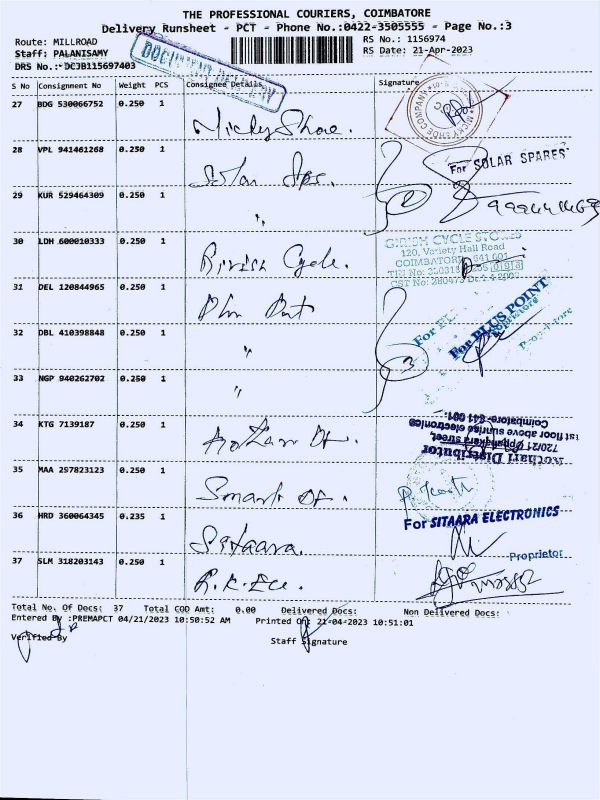 THE PROFESSIONAL COURIERS, COIMBATORE
Delivery Runsheet - PCT - Phone No.:0422-3505555 - Page No.:3
Route: MILLROAD
Staff: PALANISAMY
DRS No.: DCJB115697403
RS No.: 1156974
RS Date: 21-Apr-2023
S No Consignment No Weight PCS Consignee Details Signature
27 BDG 530066752 0.250 1 Micky Shoe.
MICKY SHOE COMPANY
28 VPL 941461268 0.250 1 Solar Sps.
For SOLAR SPARES
29 KUR 529464309 0.250 1 "
2
30 LDH 600010333 0.250 1 Cycle.
GIRISH CYCLE STORES
120, Variety Hall Road
COIMBATORE 641 001
31 DEL 120844965 0.250 1 Plus Point
For PLUS POINT
Proprietore
32 DBL 410398848 0.250 1 "
3
33 NGP 940262702 0.250 1 "
34 KTG 7139187 0.250 1 Kothari Dt.
Kothari Distributor
720/21 Oppanakara street,
1st floor above sunrise electronics
Coimbatore- 641 001
35 MAA 297823123 0.250 1 Smart
36 HRD 360064345 0.235 1 Sitaara.
For SITAARA ELECTRONICS
Proprietor
37 SLM 318203143 0.250 1 R.K. Ele.
Total No. Of Docs: 37 Total COD Amt: 0.00 Delivered Docs: Non Delivered Docs:
Entered By :PREMAPCT 04/21/2023 10:50:52 AM Printed On: 21-04-2023 10:51:01
Verified By
Staff Signature